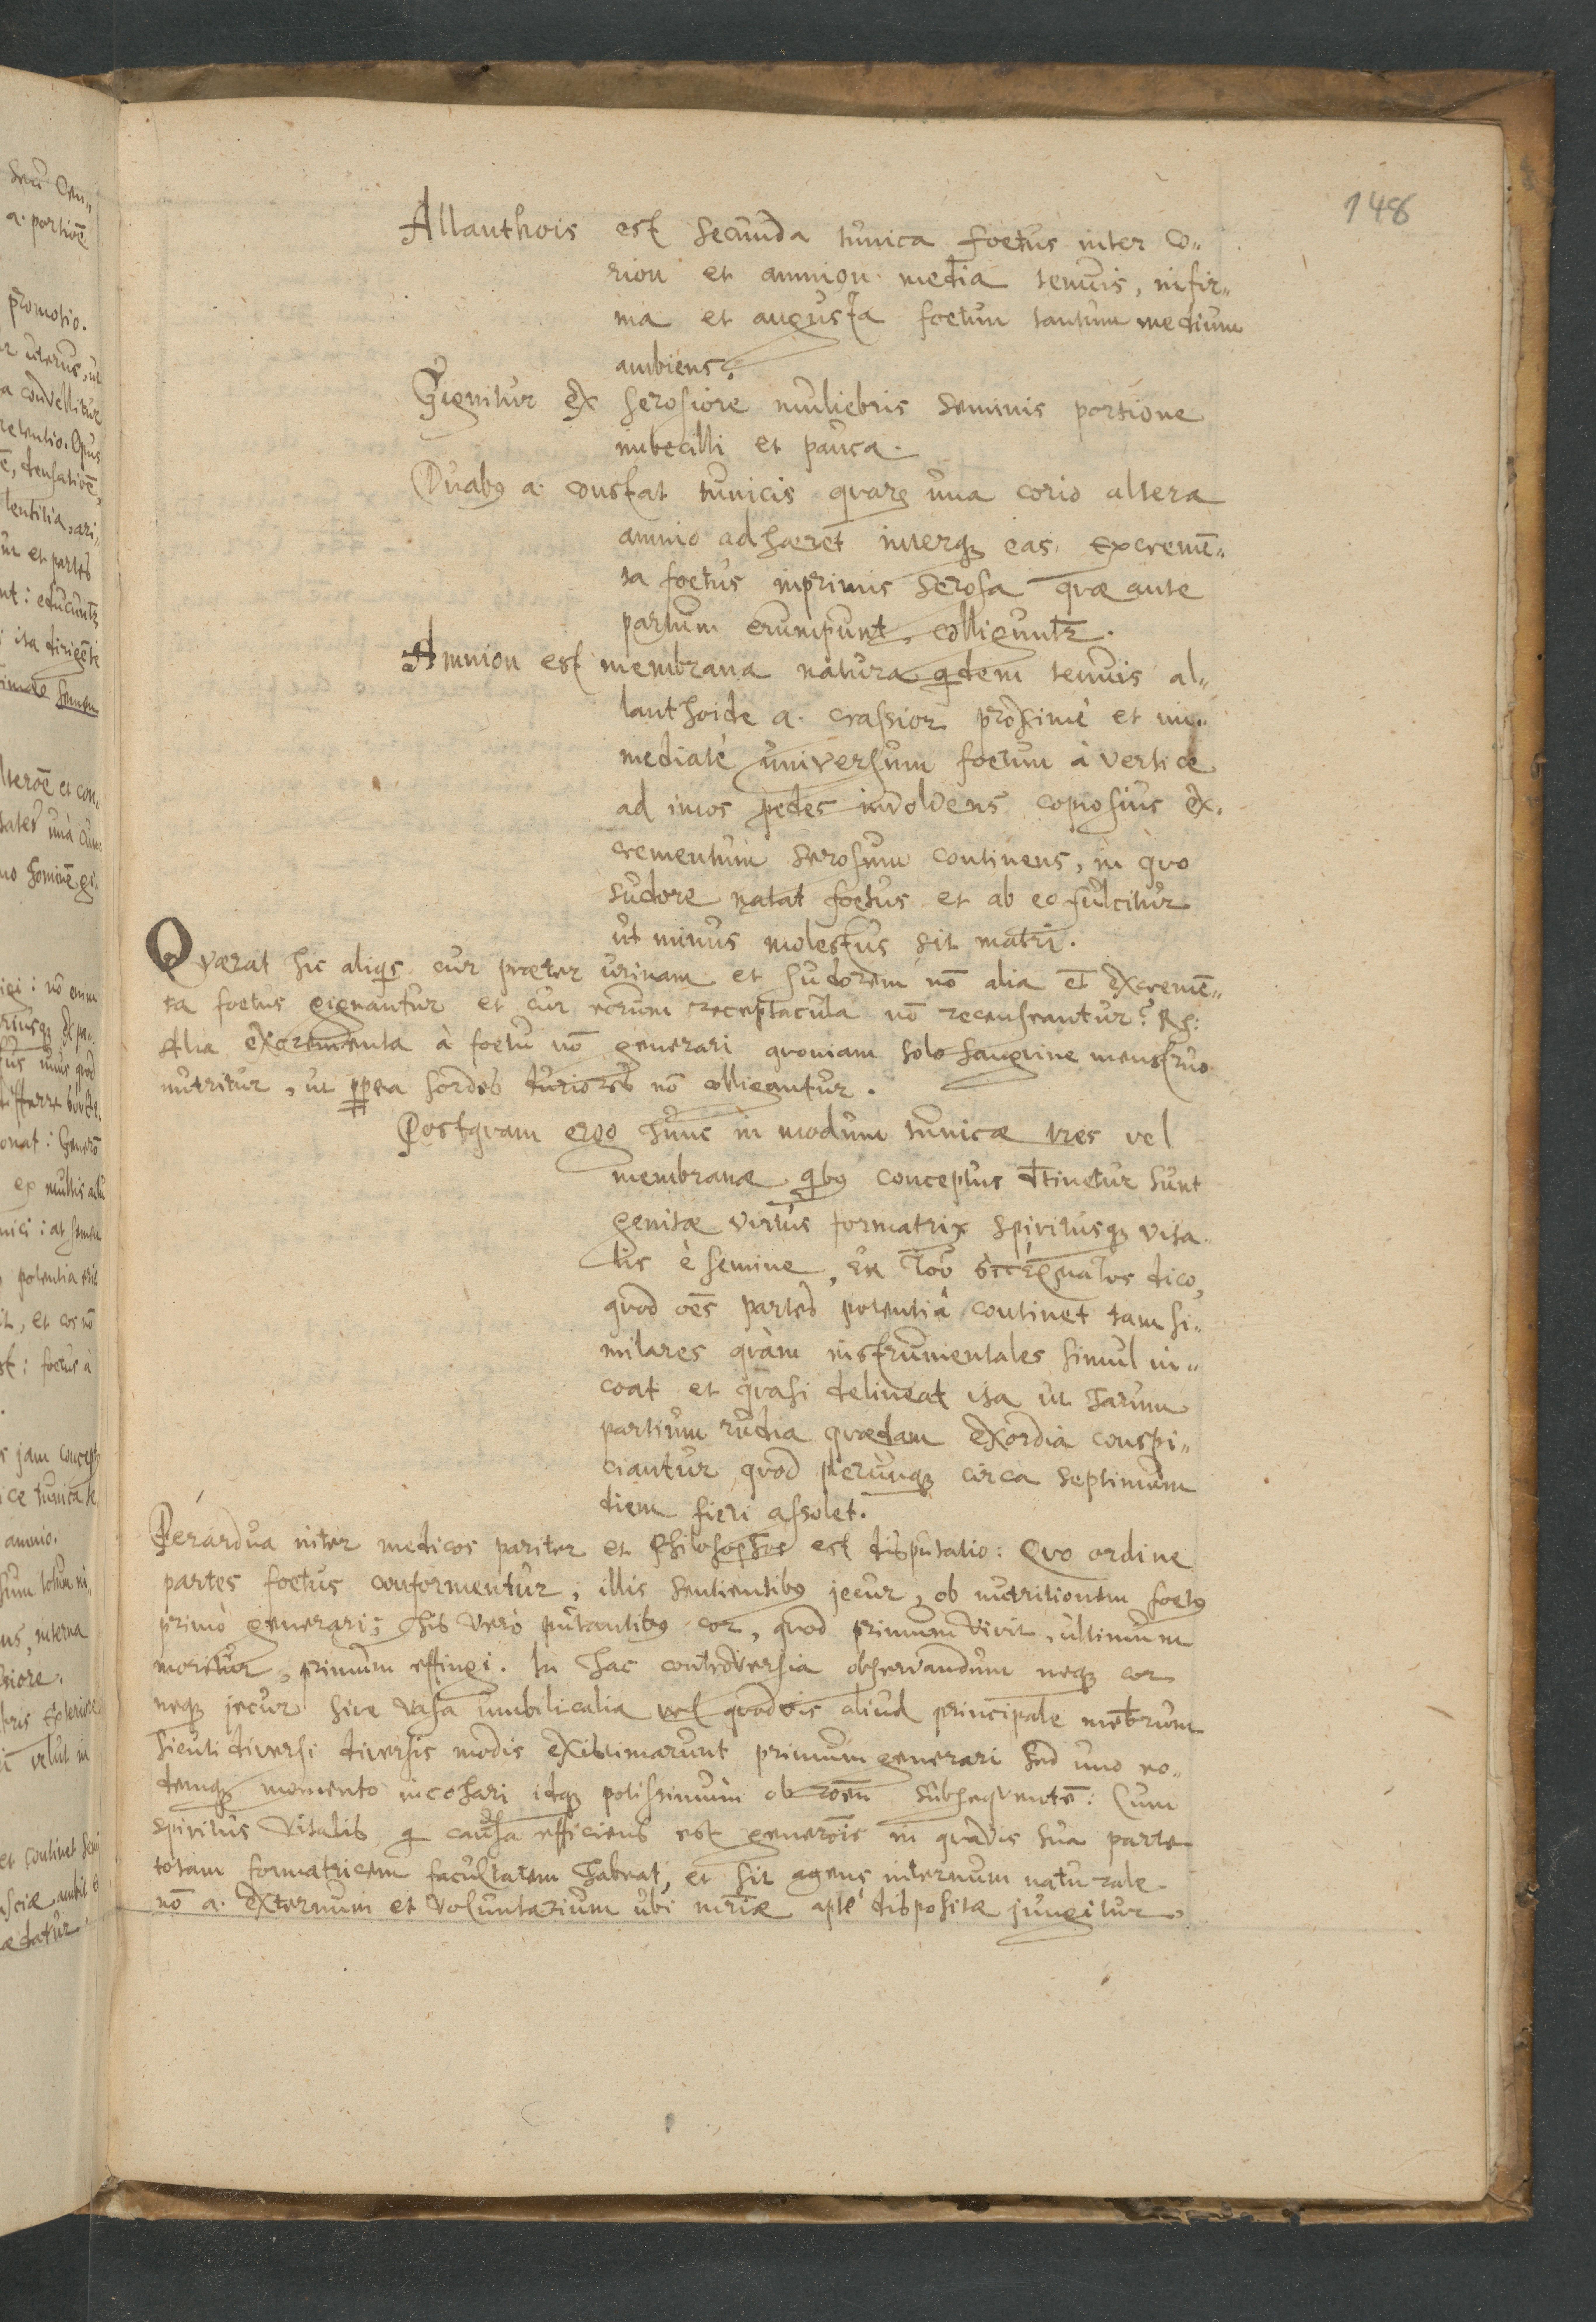 148
Allanthois est secunda tunica foetus inter co„
rion et amnion media tenuis, infir„
ma et augusta foetum tantum medium
ambiens.
Gignitur ex serosiore muliebris seminis portione
imbecilli et pauca.
Duabꝫ a. constat tunicis quarꝫ una corio altera
amnio adhaeret interqꝫ eas excremē„
ta foetus inprimis serosa quae ante
partum erumpunt, colliguntr.
Amnion est membrana natura qdem tenuis al„
lanthoide a. crassior proximè et im„
mediatè universum foetum à vertice
ad imos pedes involvens copiosius ex„
crementum serosum continens, in quo
sudore natat foetus et ab eo fulcitur
ut minus molestus sit matri.
Quaerat hic aliqs cur praeter urinam et sudorem nō alia et excremē„
ta foetus gignantur et cur eorum receptacula nō recenseantur? Rs:
Alia excrementa à foetu nō generari quoniam solo sanguine menstruo
nutritur, ut ppea sordes duriores nō colligantur.
Postquam ergo hunc in modum tunicae tres vel
membranae qbꝫ conceptus dtinetur sunt
genitae virtus formatrix spiritusqꝫ vita„
lis è semine, ἐκ τοῦ σπέρματος dico,
quod oēs partes potentiâ continet tam si„
milares quàm instrumentales simul in„
coat et quasi delineat ita ut harum
partium rudia quaedam exordia conspi„
ciantur quod plerunqꝫ circa septimum
diem fieri assolet.
Perardua inter medicos pariter et Philosophos est disputatio: Quo ordine
partes foetus conformentur, illis sentientibꝫ jecur, ob nutritionem foetꝫ
primò generari; his verò putantibꝫ cor, quod primum vivit, ultimum
moritur, primum effingi. In hac controversia observandum neqꝫ cor
neqꝫ jecur sive vasa umbilicalia vel quodvis aliud principale mēbrum
sicuti diversi diversis modis existimarunt primum generari sed uno eo„
demqꝫ momento incohari idqꝫ potissimùm ob roēm subsequentē: Cum
spiritus vitalis q causa efficiens est generōis in quavis sua parte
totam formatricem facultatem habeat, et sit agens internum naturale
nō a. externum et voluntarium ubi mriae aptè dispositae jungitur.